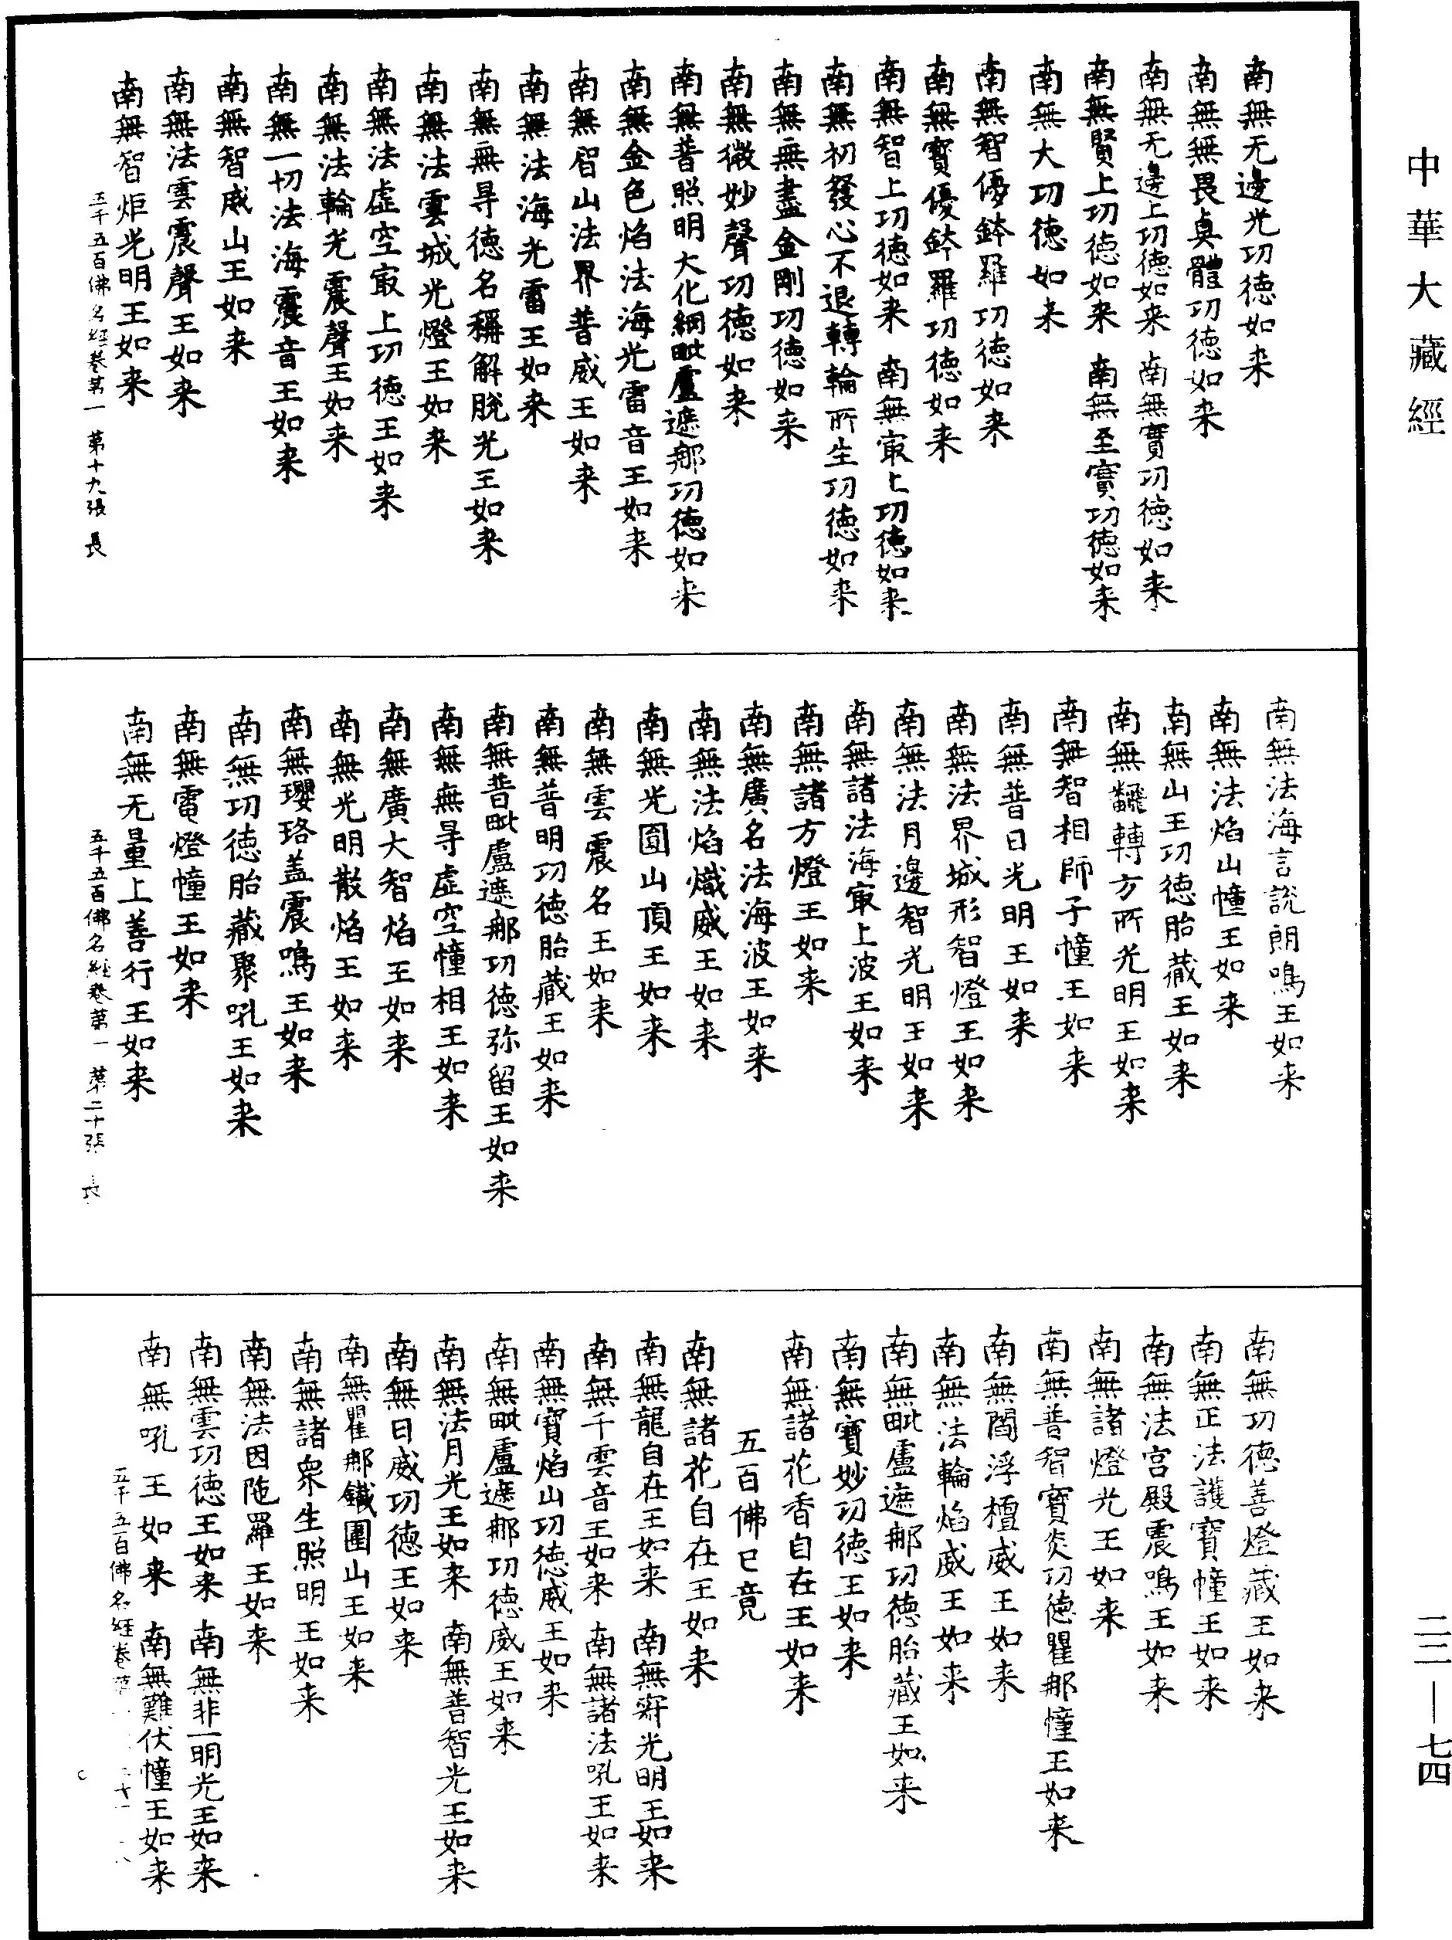 中華大藏經
南無无邊光功德如来
南無無畏真體功德如来
南無无邊上功德如来 南無寶功德如来
南無賢上功德如来 南無至寶功德如来
南無大功德如来
南無智優鉢羅功德如来
南無寶優鉢羅功德如来
南無智上功德如来 南無㝡上功德如来
南無初發心不退轉輪所生功德如来
南無無盡金剛功德如来
南無微妙聲功德如来
南無普照明大化網毗盧遮那功德如来
南無金色焰法海光雷音王如来
南無智山法界普威王如来
南無法海光雷王如来
南無無㝵德名稱解脫光王如来
南無法雲城光燈王如来
南無法虛空㝡上功德王如来
南無法輪光震聲王如来
南無一切法海震音王如来
南無智威山王如来
南無法雲震聲王如来
南無智炬光明王如来
五千五百佛名經卷苐一 第十九張 長
南無法海言說朗鳴王如来
南無法焰山幢王如来
南無山王功德胎藏王如来
南無飜轉方所光明王如来
南無智相師子幢王如来
南無普日光明王如来
南無法界城形智燈王如来
南無法月邊智光明王如来
南無諸法海㝡上波王如来
南無諸方燈王如来
南無廣名法海波王如来
南無法焰熾威王如来
南無光圓山頂王如来
南無雲震名王如来
南無普明功德胎藏王如来
南無普毗盧遮那功德弥留王如来
南無無㝵虛空幢相王如来
南無廣大智焰王如来
南無光明散焰王如来
南無瓔珞盖震鳴王如来
南無功德胎藏聚吼王如来
南無電燈幢王如来
南無无量上善行王如来
五千五百佛名經卷苐一 苐二十張 長
南無功德善燈藏王如来
南無正法護寶幢王如来
南無法宮殿震鳴王如来
南無諸燈光王如来
南無普智寶炎功德瞿那幢王如来
南無閻浮檀威王如来
南無法輪焰威王如来
南無毗盧遮那功德胎藏王如来
南無寶妙功德王如来
南無諸花香自在王如来
五百佛已竟
南無諸花自在王如来
南無龍自在王如来 南無寂光明王如来
南無千雲音王如来 南無諸法吼王如来
南無寶焰山功德威王如来
南無毗盧遮那功德威王如来
南無法月光王如来 南無善智光王如来
南無日威功德王如来
南無瞿那鐵圍山王如来
南無諸眾生照明王如来
南無法因陁羅王如来
南無雲功德王如来 南無非一明光王如来
南無吼王如来 南無難伏幢王如来
五千五百佛名經卷苐
二二—七四